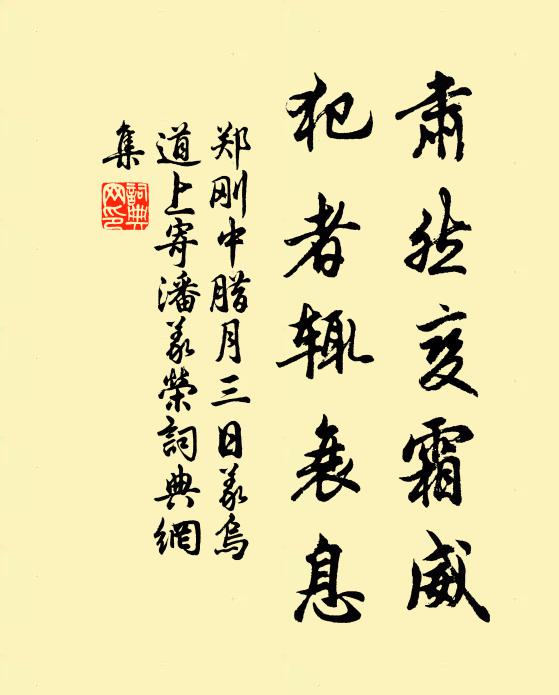 肃然变霜威
犯者辄衰息
郑刚中腊月三日义乌
道上寄潘义荣詞典網
集
詞典网印